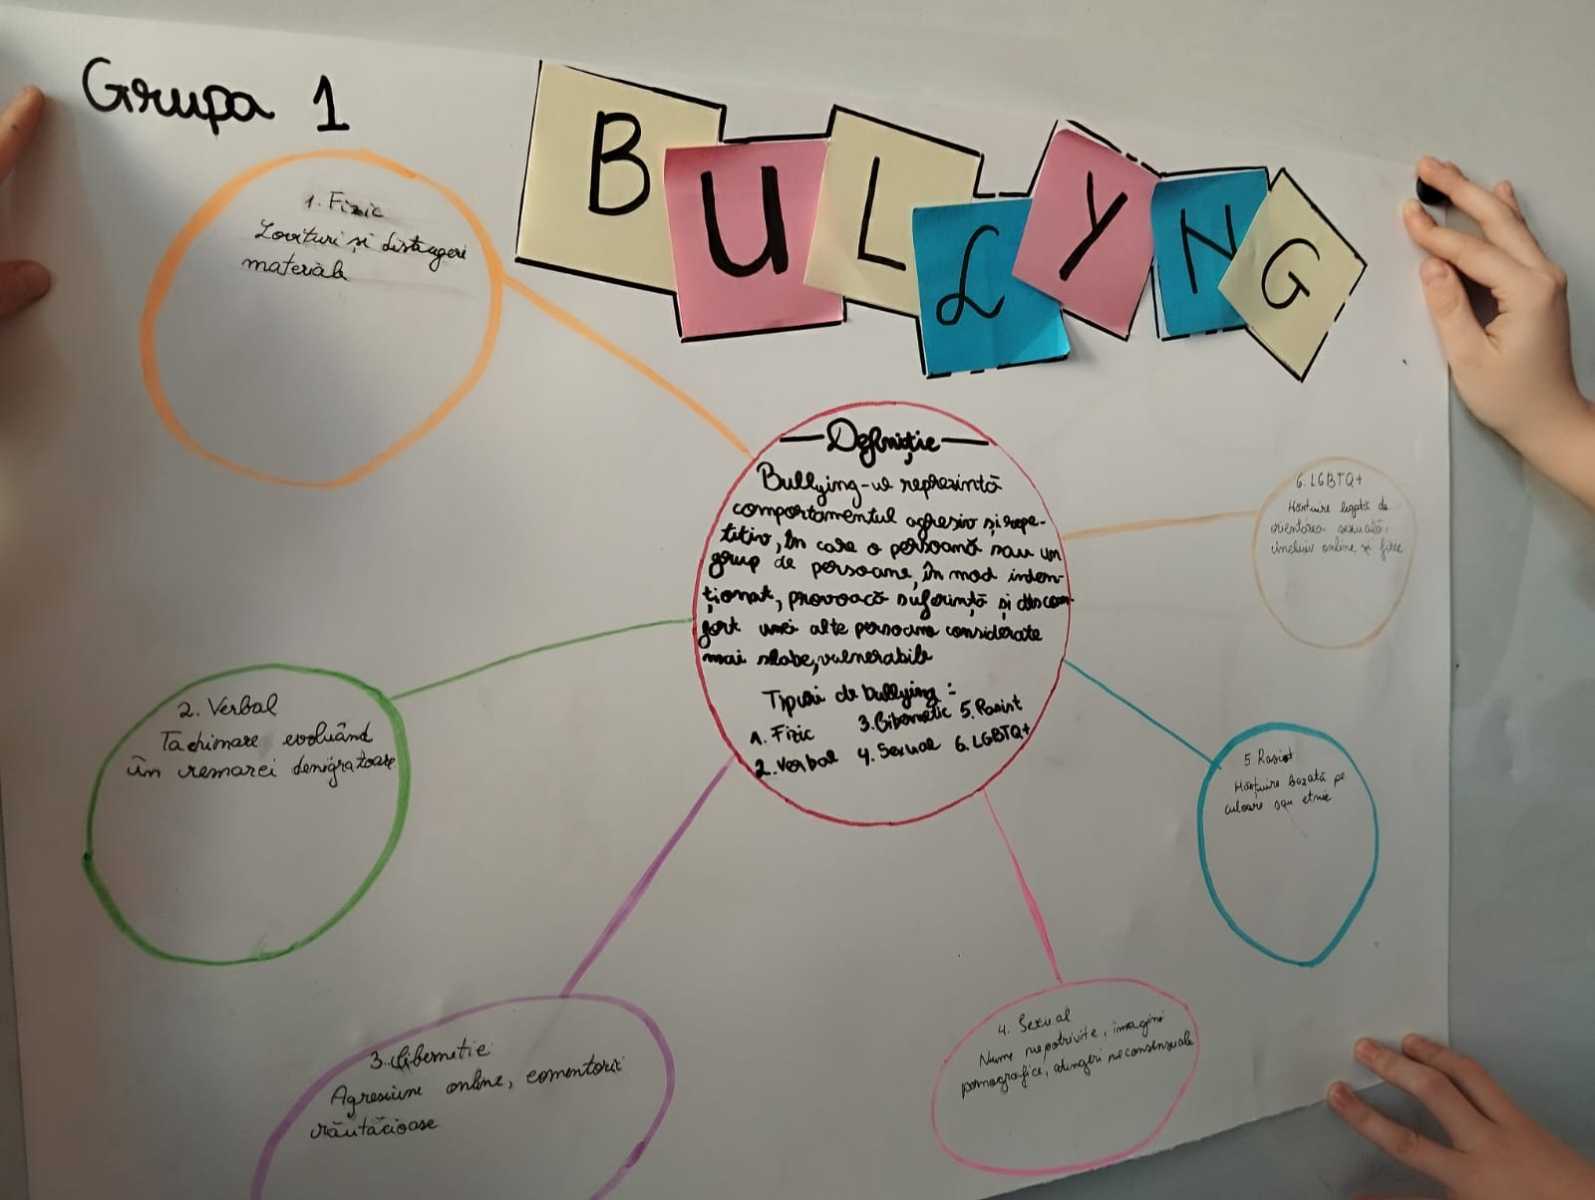 Grupa 1
BULLYNG
1. Fizic
Lovituri și distrugeri
materiale
Definiție
Bullying-ul reprezintă
comportamentul agresiv și repe-
titiv, în care o persoană sau un
grup de persoane, în mod inten-
ționat, provoacă suferință și discom-
fort unei alte persoane considerate
mai slabe, vulnerabile
Tipuri de bullying:
1. Fizic 3. Cibernetic 5. Rasist
2. Verbal 4. Sexual 6. LGBTQ+
6. LGBTQ+
Hărțuire legată de
orientarea sexuală,
inclusiv online și fizic
2. Verbal
Tachinare evoluând
în remarci denigratoare
5. Rasist
Hărțuire bazată pe
culoare sau etnie
3. Cibernetic
Agresiune online, comentorii
răutăcioase
4. Sexual
Nume nepotrivite, imagini
pornografice, atingeri neconsensuale